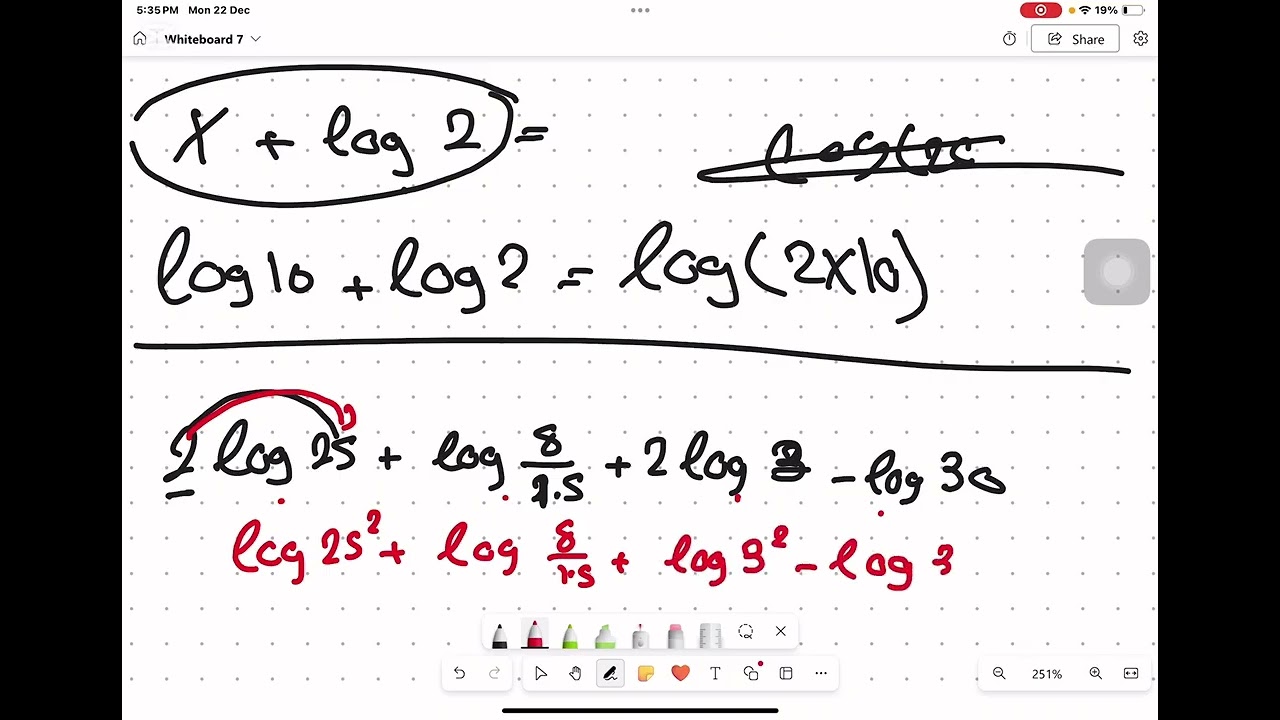 5:35 PM Mon 22 Dec
19%
Whiteboard 7
Share
x + log 2 =
log 10 + log 2 = log(2x10)
2 log 25 + log 8/7.5 + 2 log 3 - log 30
log 25² + log 8/7.5 + log 3² - log 3
T
251%